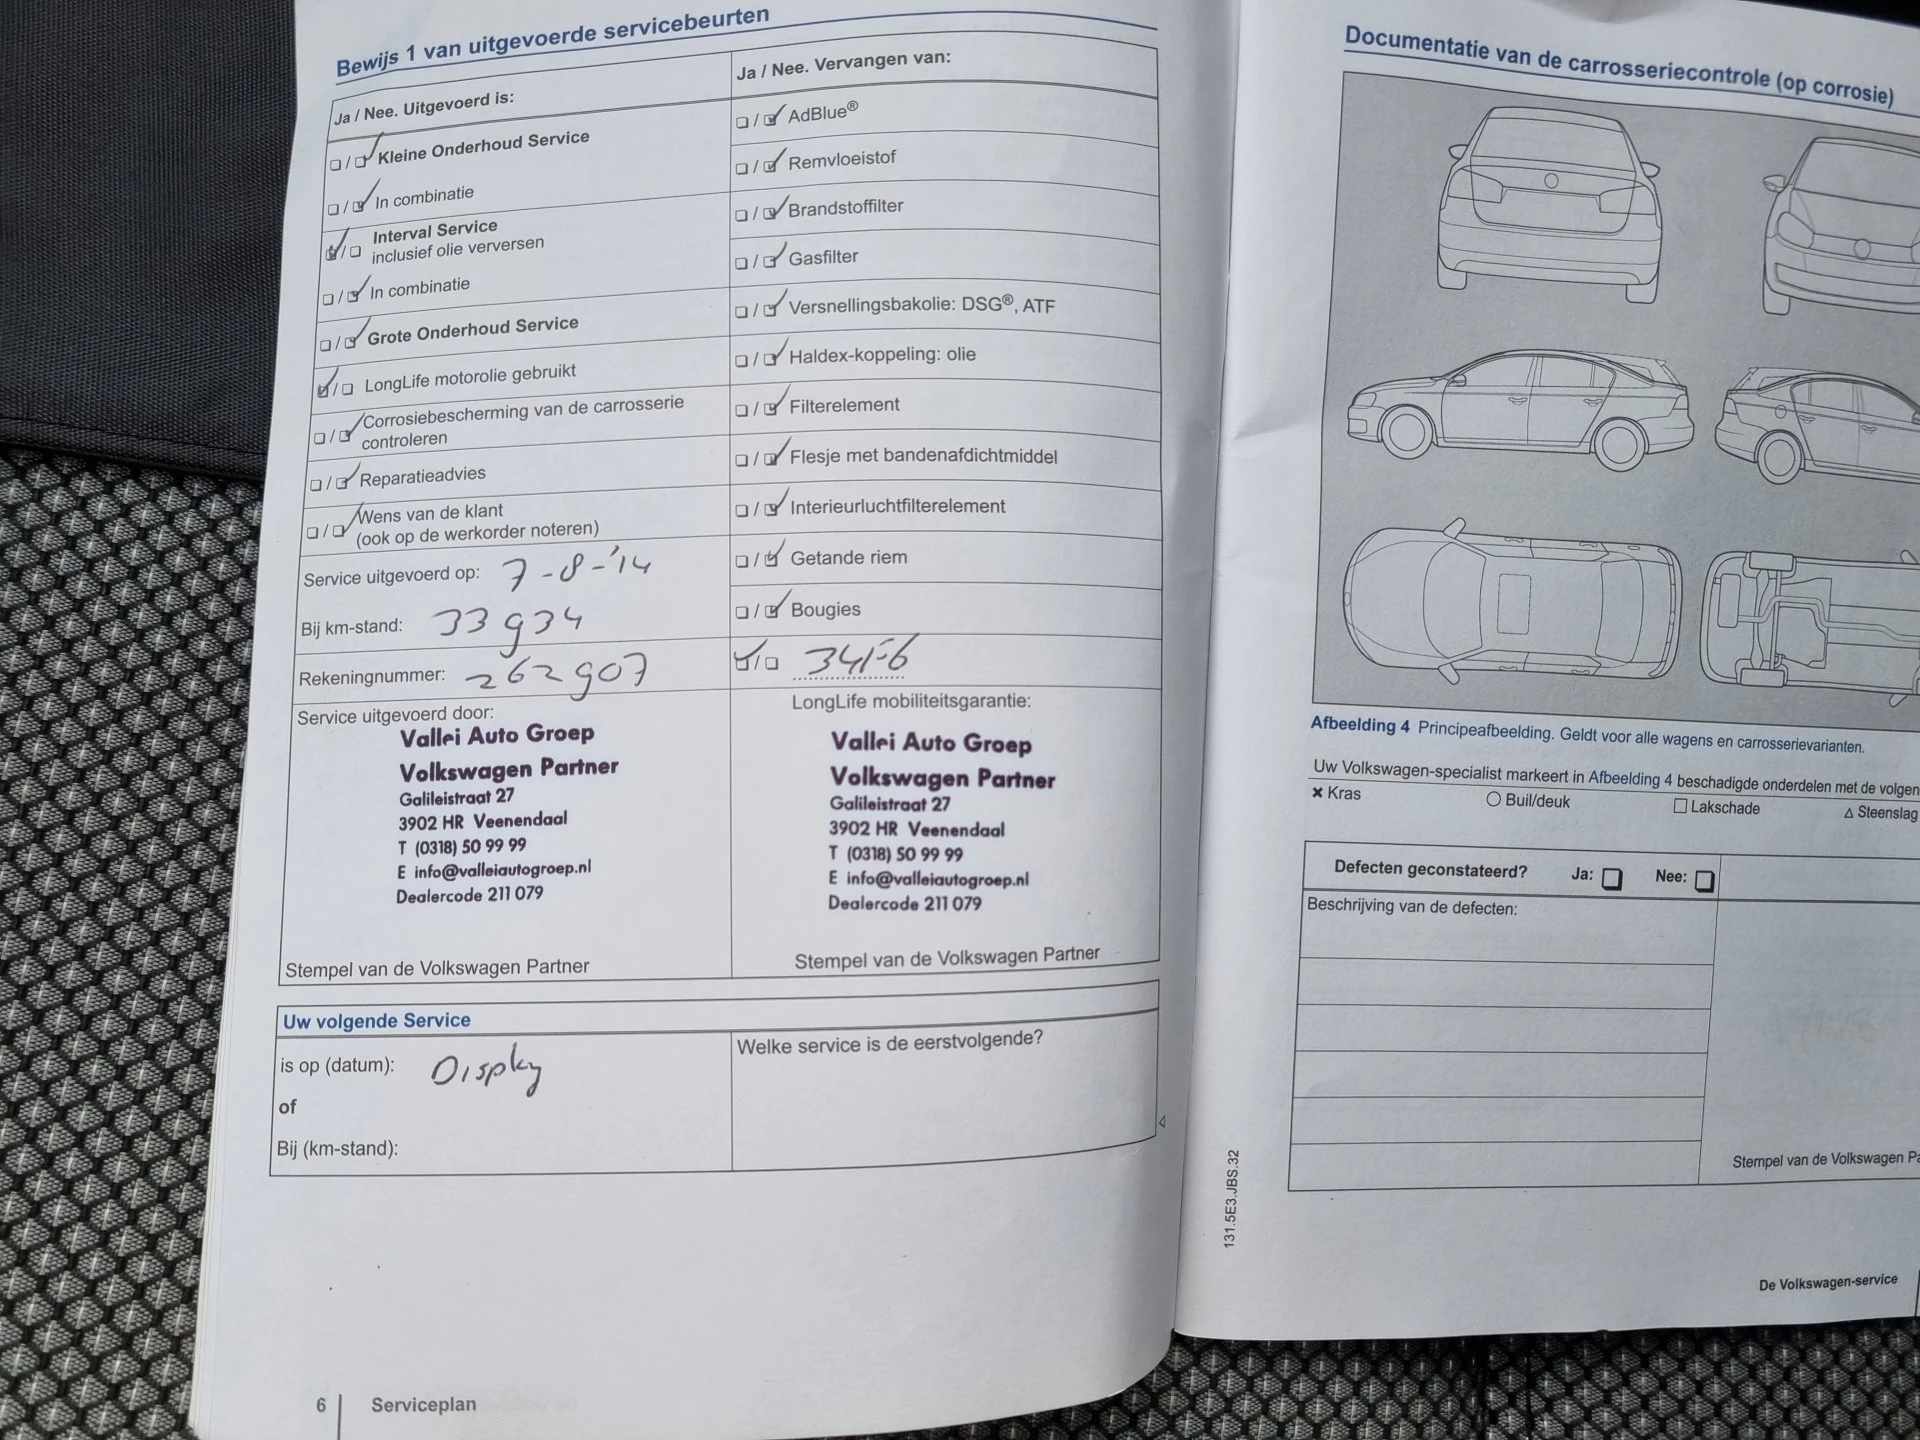 Bewijs 1 van uitgevoerde servicebeurten
Ja / Nee. Uitgevoerd is:
Kleine Onderhoud Service
In combinatie
Interval Service
inclusief olie verversen
In combinatie
Grote Onderhoud Service
LongLife motorolie gebruikt
Corrosiebescherming van de carrosserie
controleren
Reparatieadvies
Wens van de klant
(ook op de werkorder noteren)
Service uitgevoerd op: 7-8-'14
Bij km-stand: 33934
Rekeningnummer: 262907
Service uitgevoerd door:
Vallei Auto Groep
Volkswagen Partner
Galileistraat 27
3902 HR Veenendaal
T (0318) 50 99 99
E info@valleiautogroep.nl
Dealercode 211 079
Stempel van de Volkswagen Partner
Ja / Nee. Vervangen van:
AdBlue®
Remvloeistof
Brandstoffilter
Gasfilter
Versnellingsbakolie: DSG®, ATF
Haldex-koppeling: olie
Filterelement
Flesje met bandenafdichtmiddel
Interieurluchtfilterelement
Getande riem
Bougies
LongLife mobiliteitsgarantie:
Vallei Auto Groep
Volkswagen Partner
Galileistraat 27
3902 HR Veenendaal
T (0318) 50 99 99
E info@valleiautogroep.nl
Dealercode 211 079
Stempel van de Volkswagen Partner
Uw volgende Service
is op (datum): Display
of
Bij (km-stand):
Welke service is de eerstvolgende?
6
Serviceplan
Documentatie van de carrosseriecontrole (op corrosie)
Afbeelding 4 Principeafbeelding. Geldt voor alle wagens en carrosserievarianten.
Uw Volkswagen-specialist markeert in Afbeelding 4 beschadigde onderdelen met de volgen
× Kras
○ Buil/deuk
□ Lakschade
△ Steenslag
Defecten geconstateerd? Ja: Nee:
Beschrijving van de defecten:
Stempel van de Volkswagen Pa
131.5E3.JBS.32
De Volkswagen-service